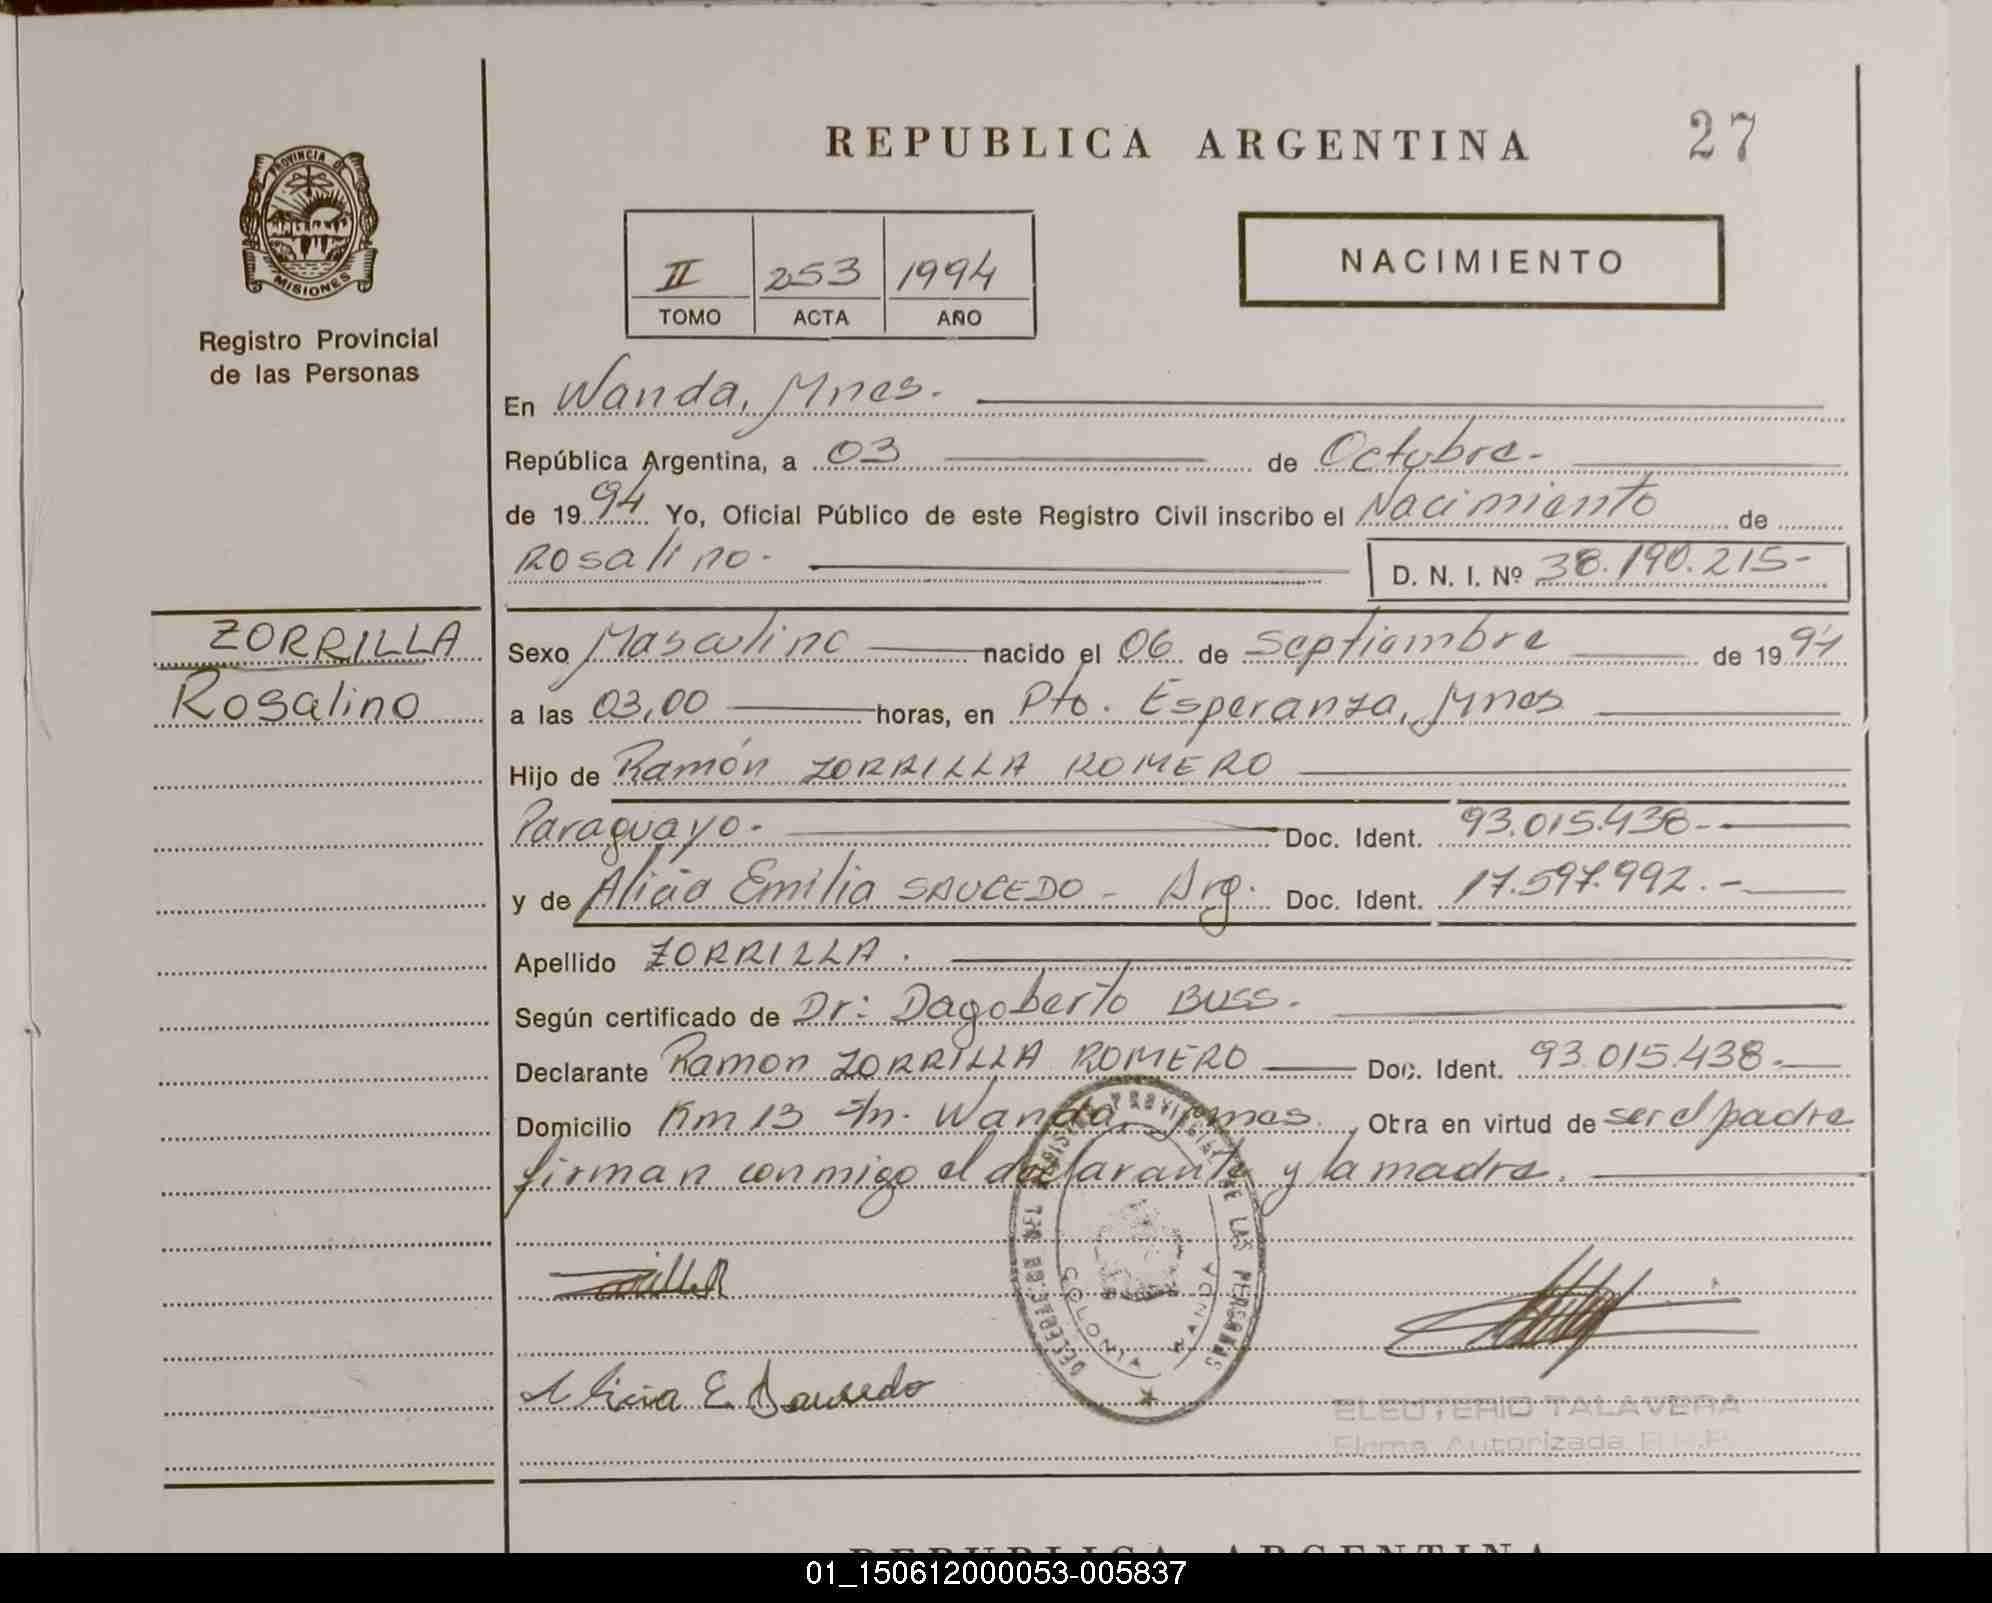 REPUBLICA ARGENTINA
27
PROVINCIA DE
MISIONES
Registro Provincial
de las Personas
II 253 1994
TOMO ACTA AÑO
NACIMIENTO
En Wanda, Mnes.
República Argentina, a 03 de Octubre-
de 1994 Yo, Oficial Público de este Registro Civil inscribo el Nacimiento de
Rosalino-
D. N. I. Nº 38.190.215-
ZORRILLA
Rosalino
Sexo Masculino nacido el 06 de Septiembre de 1994
a las 03,00 horas, en Pto. Esperanza, Mnes
Hijo de Ramón ZORRILLA ROMERO
Paraguayo- Doc. Ident. 93.015.438-
y de Alicia Emilia SAUCEDO - Arg. Doc. Ident. 17.597.992.-
Apellido ZORRILLA.
Según certificado de Dr: Dagoberto BUSS.
Declarante Ramon ZORRILLA ROMERO Doc. Ident. 93.015.438-
Domicilio Km 13 s/n. Wanda, Mnes. Obra en virtud de ser el padre
firman conmigo el declarante y la madre.
REGISTRO PROVINCIAL DE LAS PERSONAS
COLONIA WANDA
Zorrilla
Alicia E Saucedo
ELEUTERIO TALAVERA
Firma Autorizada
REPUBLICA ARGENTINA
01_150612000053-005837